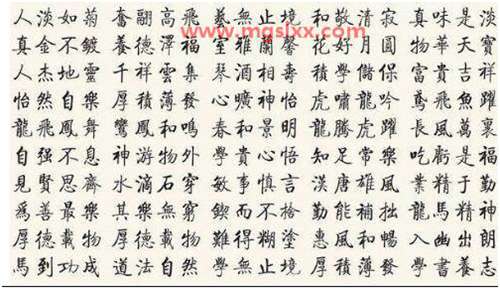 www.gslxx.com
人淡如菊 奮翮高飛 藝無止境 和敬清寂 真味是淡
真金不鍍 養德澤福 室雅蘭馨 花好月圓 物華天寶
人杰地靈 千祥雲集 琴酒相壽 積學儲保 富貴吉祥
怡然自樂 厚積薄發 心曠神怡 虎嘯龍吟 鳶飛魚躍
龍飛鳳舞 鸞鳳和鳴 春和景明 龍騰虎躍 長風萬裏
自强不息 神游物外 學貴心悟 知足常樂 吃虧是福
見賢思齊 水滴石穿 敏事慎言 漢唐雄風 業精于勤
爲善最樂 其樂無窮 鍥而不捨 勤能補拙 龍馬精神
厚德載物 難得糊塗 惠風和暢 入幽出朗
馬到功成 道法自然 學無止境 厚積薄發 學書養志